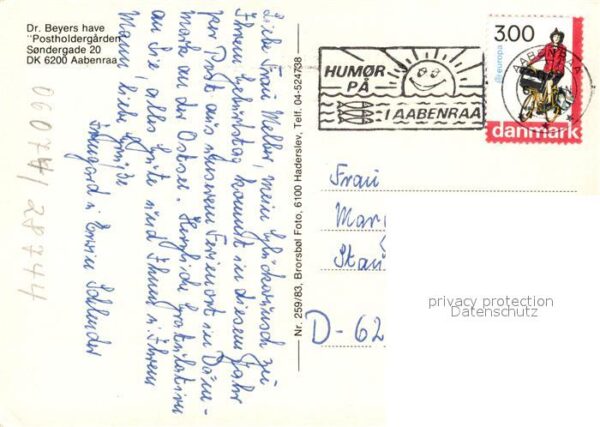 Dr. Beyers have
"Postholdergården"
Søndergade 20
DK 6200 Aabenraa
Liebe Frau Meller, mein Glückwunsch zu
Ihrem Geburtstag kommt in diesem Jahr
per Post aus unserem Ferienort in Däne-
mark an der Ostsee. Herzliche Gratulation
an Sie, alles Gute und Ihnen u. Ihrem
Mann, liebe Grüße
Irmgard u. Erwin
060741 28744
Nr. 259/83, Brorsbøl Foto, 6100 Haderslev, Telf. 04-524738
HUMØR
PÅ
I AABENRAA
3.00
europa
danmark
AABENRAA
Frau
Mar
D-62
privacy protection
Datenschutz